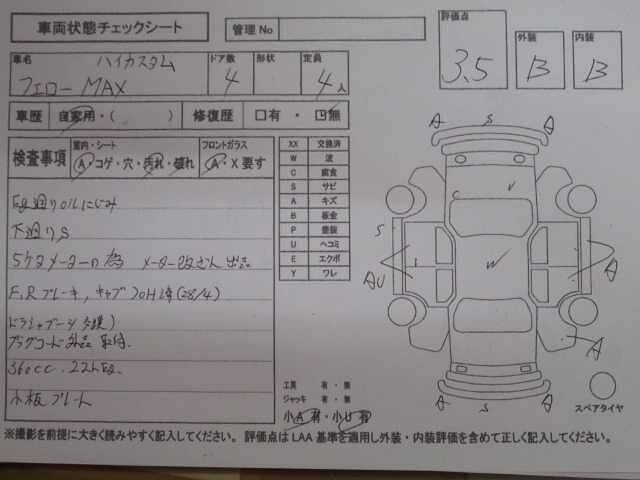 車両状態チェックシート
管理No
評価点
3.5
外装
B
内装
B
車名
ハイカスタム
フェローMAX
ドア数
4
形状
定員
4人
車歴 自家用・( )
修復歴 □有・□無
検査事項
室内・シート
A・コゲ・穴・汚れ・破れ
フロントガラス
A・X要す
XX 交換済
W 波
C 腐食
S サビ
A キズ
B 板金
P 塗装
U ヘコミ
E エクボ
Y ワレ
Eg廻りOILにじみ
下廻りS
5ケタメーターの為 メーター改ざん出品
F,Rブレーキ,キャブ
(28/4)
ドラシャブーツ
プラグコード 取付.
360cc.
小板プレート
A S A
C V
S
W
AU
A
A
A S A
工具 有・無
ジャッキ 有・無
小A有・小U有
スペアタイヤ
※撮影を前提に大きく読みやすく記入してください。評価点は LAA 基準を適用し外装・内装評価を含めて正しく記入してください。